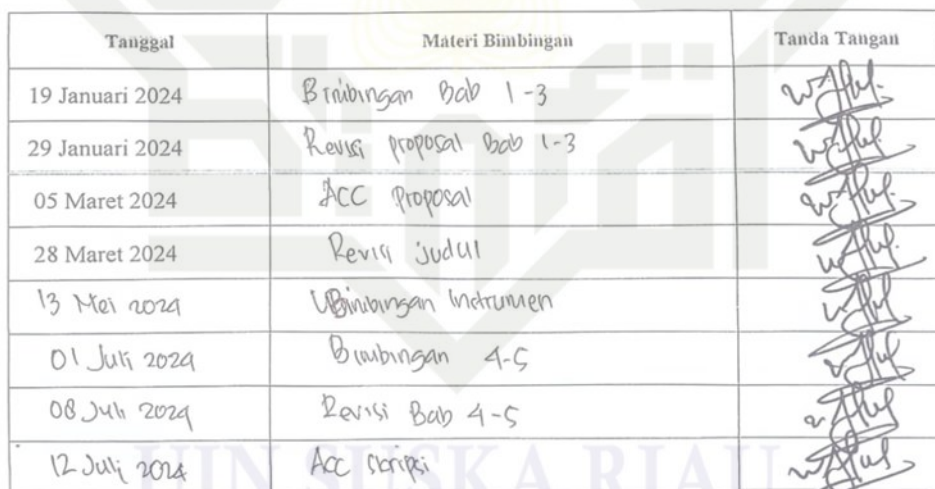 Tanggal Materi Bimbingan Tanda Tangan
19 Januari 2024 Bimbingan Bab 1-3
29 Januari 2024 Revisi proposal Bab 1-3
05 Maret 2024 ACC Proposal
28 Maret 2024 Revisi judul
13 Mei 2024 Bimbingan Instrumen
01 Juli 2024 Bimbingan 4-5
08 Juli 2024 Revisi Bab 4-5
12 Juli 2024 Acc skripsi
UIN SUSKA RIAU